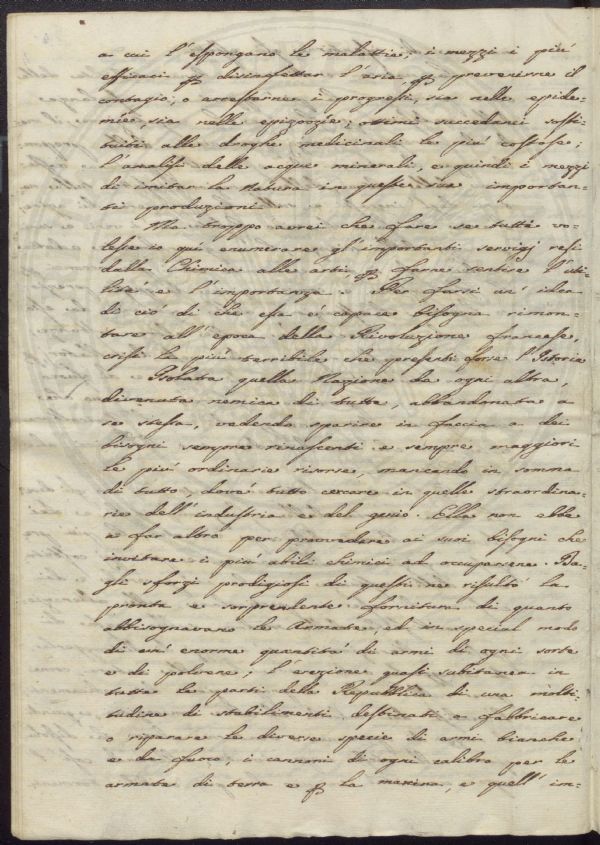 a cui l'espongano le malattie; i mezzi i più
efficaci p disinfettar l'aria p prevenirne il
contagio, o arrestarne i progressi, sia nelle epide-
mie, sia nelle epizoozie; ottimi succedanei sosti-
tuiti alle droghe medicinali le più costose;
l'analisi delle acque minerali, e quindi i mezzi
di imitar la Natura in queste sue importan-
ti produzioni.
Ma troppo avrei che fare se tutti vo-
lessi io qui enumerare gl'importanti servigj resi
dalla Chimica alle arti p farne sentire l'uti-
lità e l'importanza. Per farsi un' idea
di ciò di che essa è capace bisogna rimon-
tare all'epoca della Rivoluzione francese,
crisi la più terribile che presenti forse l'Istoria
Isolata quella Nazione da ogni altra,
divenuta nemica di tutte, abbandonata a
se stessa, vedendo sparire in faccia a dei
bisogni sempre rinascenti e sempre maggiori
le più ordinarie risorse, mancando in somma
di tutto, dové tutto cercare in quelle straordina-
rie dell'industria e del genio. Ella non ebbe
a far altro per provvedere ai suoi bisogni che
invitare i più abili chimici ad occuparsene. Da-
gli sforzi prodigiosi di questi ne risultò la
pronta e sorprendente fornitura di quanto
abbisognavano le Armate, ed in special modo
di un' enorme quantità di armi di ogni sorte
e di polvere; l'erezione quasi subitanea in
tutte le parti della Repubblica di una molti-
tudine di stabilimenti destinati a fabbricare
o riparare le diverse specie di armi bianche
e da fuoco, i cannoni di ogni calibro per le
armate di terra e p la marina, e quell' im-